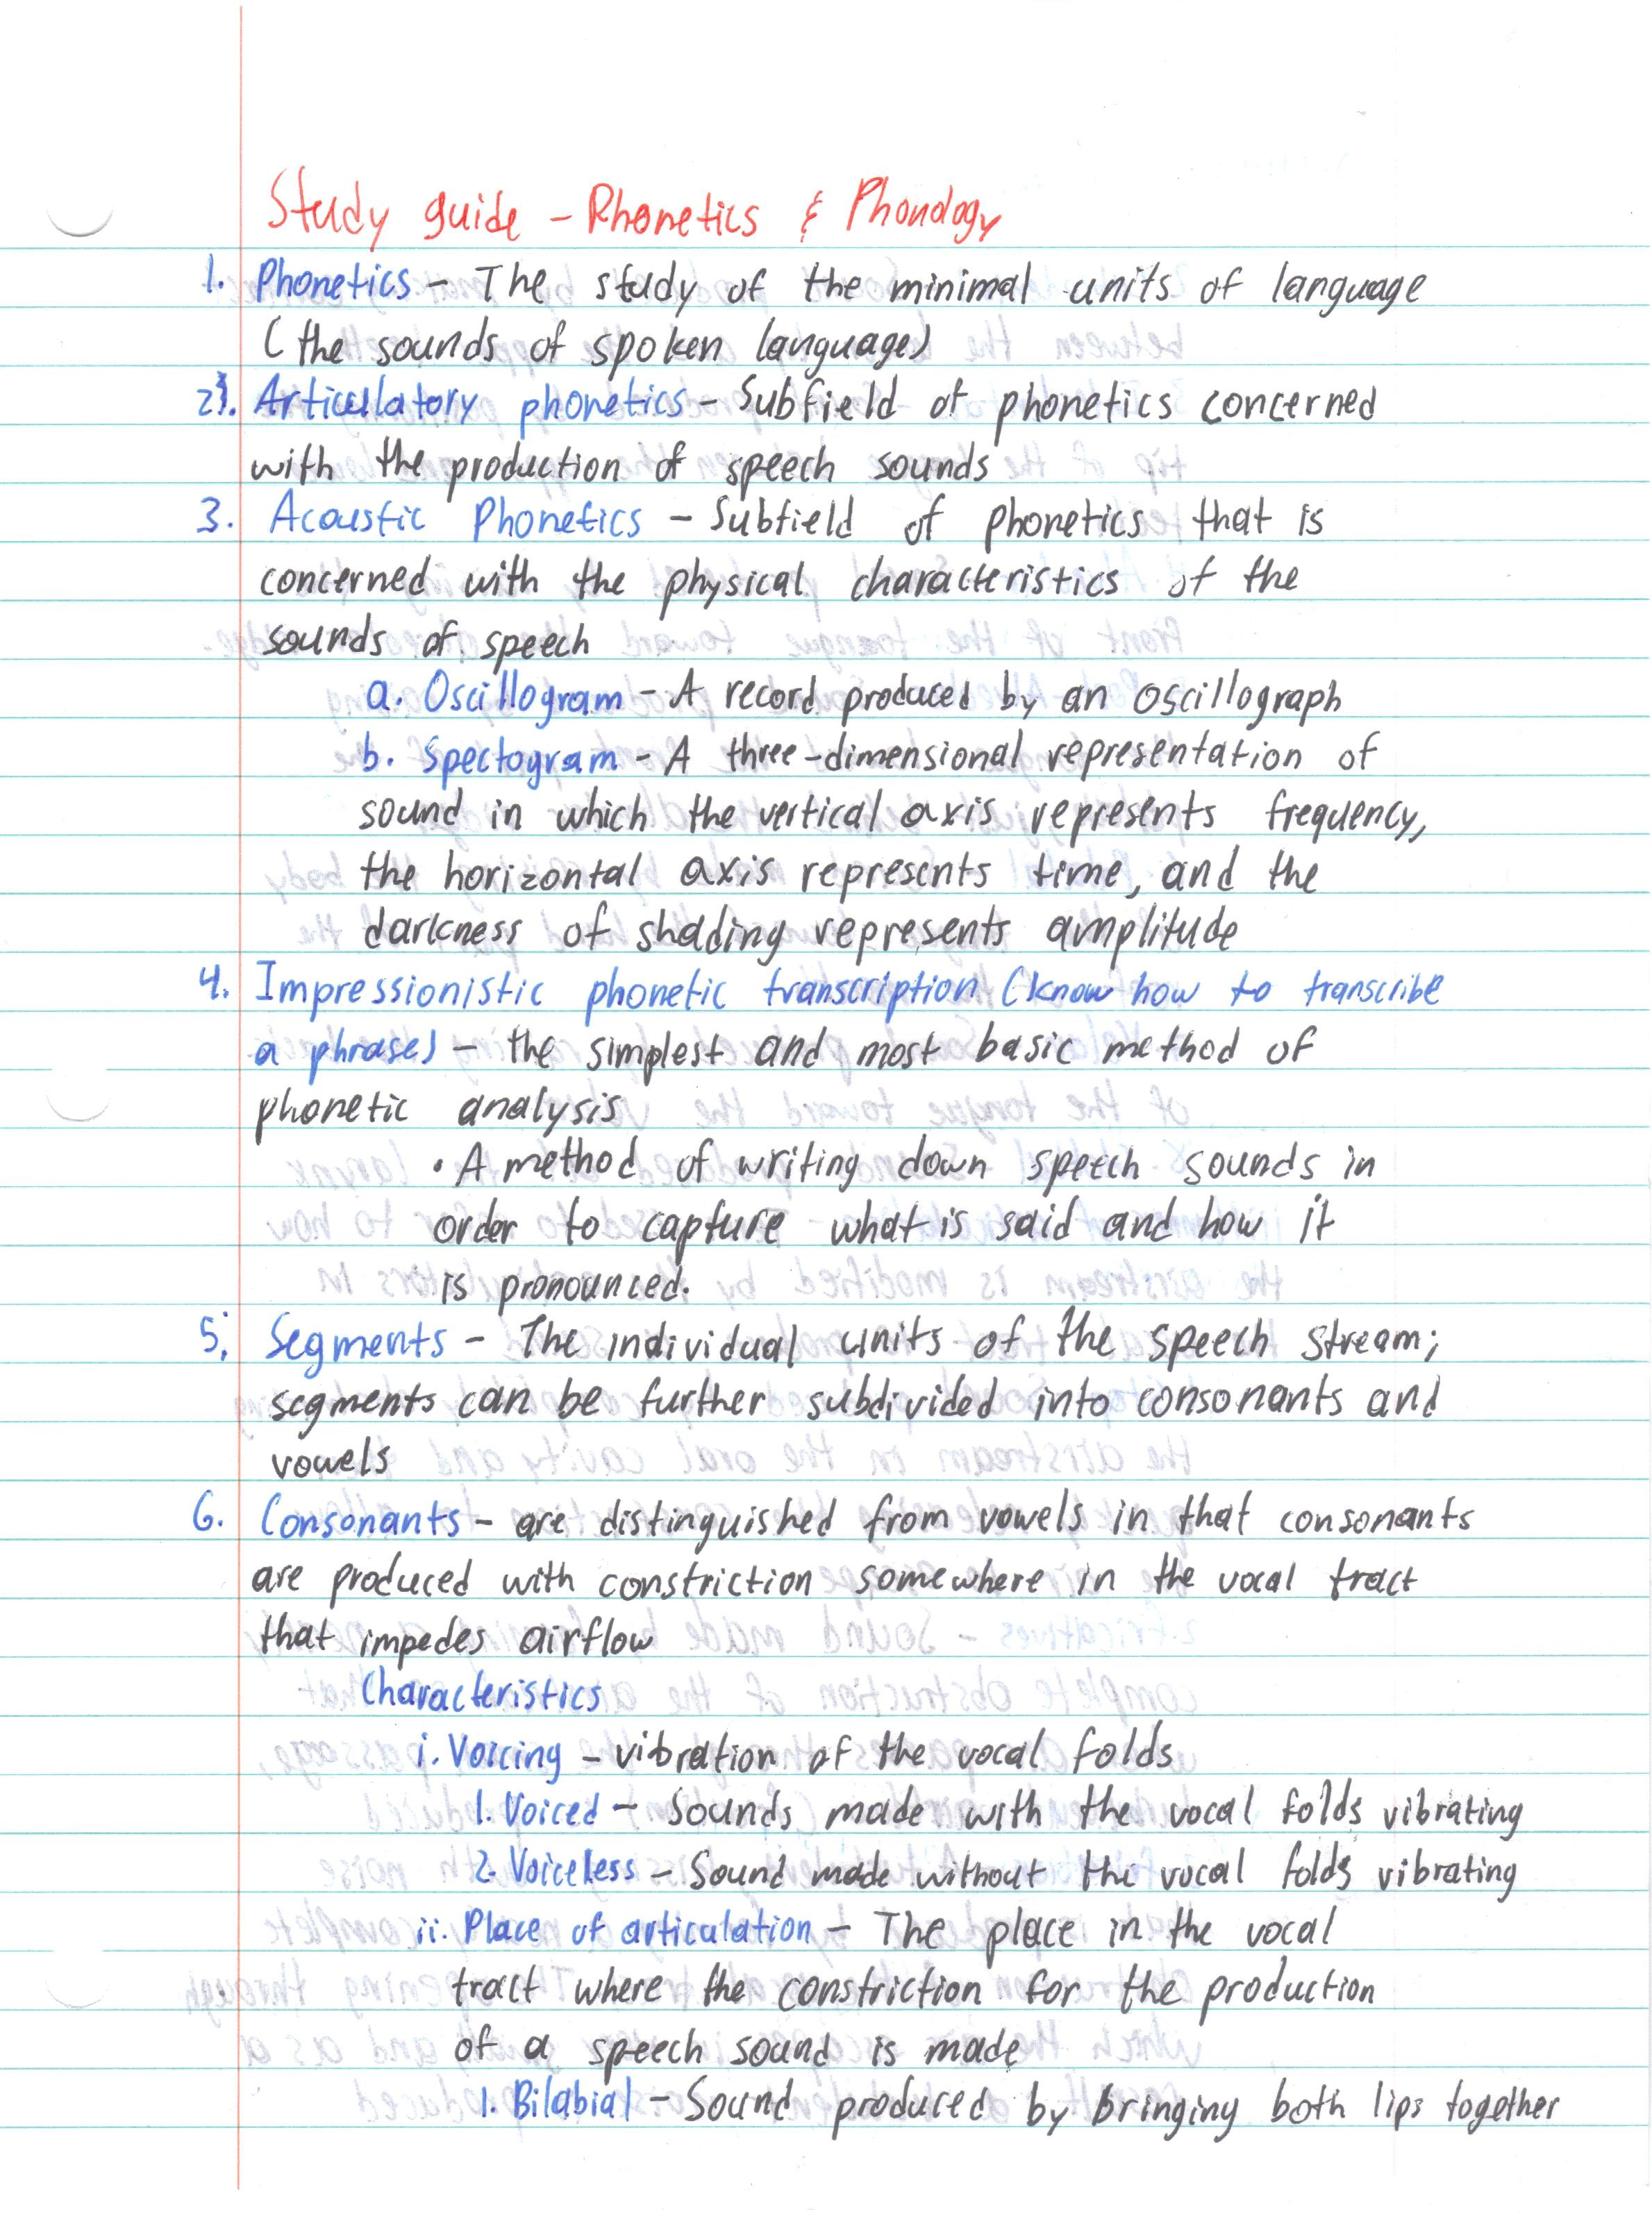 Study guide - Phonetics & Phonology
1. Phonetics - The study of the minimal units of language
(the sounds of spoken language)
2. Articulatory phonetics - Subfield of phonetics concerned
with the production of speech sounds
3. Acoustic Phonetics - Subfield of phonetics that is
concerned with the physical characteristics of the
sounds of speech
a. Oscillogram - A record produced by an oscillograph
b. Spectogram - A three-dimensional representation of
sound in which the vertical axis represents frequency,
the horizontal axis represents time, and the
darkness of shading represents amplitude
4. Impressionistic phonetic transcription (know how to transcribe
a phrase) - the simplest and most basic method of
phonetic analysis
• A method of writing down speech sounds in
order to capture what is said and how it
is pronounced.
5. Segments - The individual units of the speech stream;
segments can be further subdivided into consonants and
vowels
6. Consonants - are distinguished from vowels in that consonants
are produced with constriction somewhere in the vocal tract
that impedes airflow
Characteristics
i. Voicing - vibration of the vocal folds
1. Voiced - Sounds made with the vocal folds vibrating
2. Voiceless - Sound made without the vocal folds vibrating
ii. Place of articulation - The place in the vocal
tract where the constriction for the production
of a speech sound is made
1. Bilabial - Sound produced by bringing both lips together